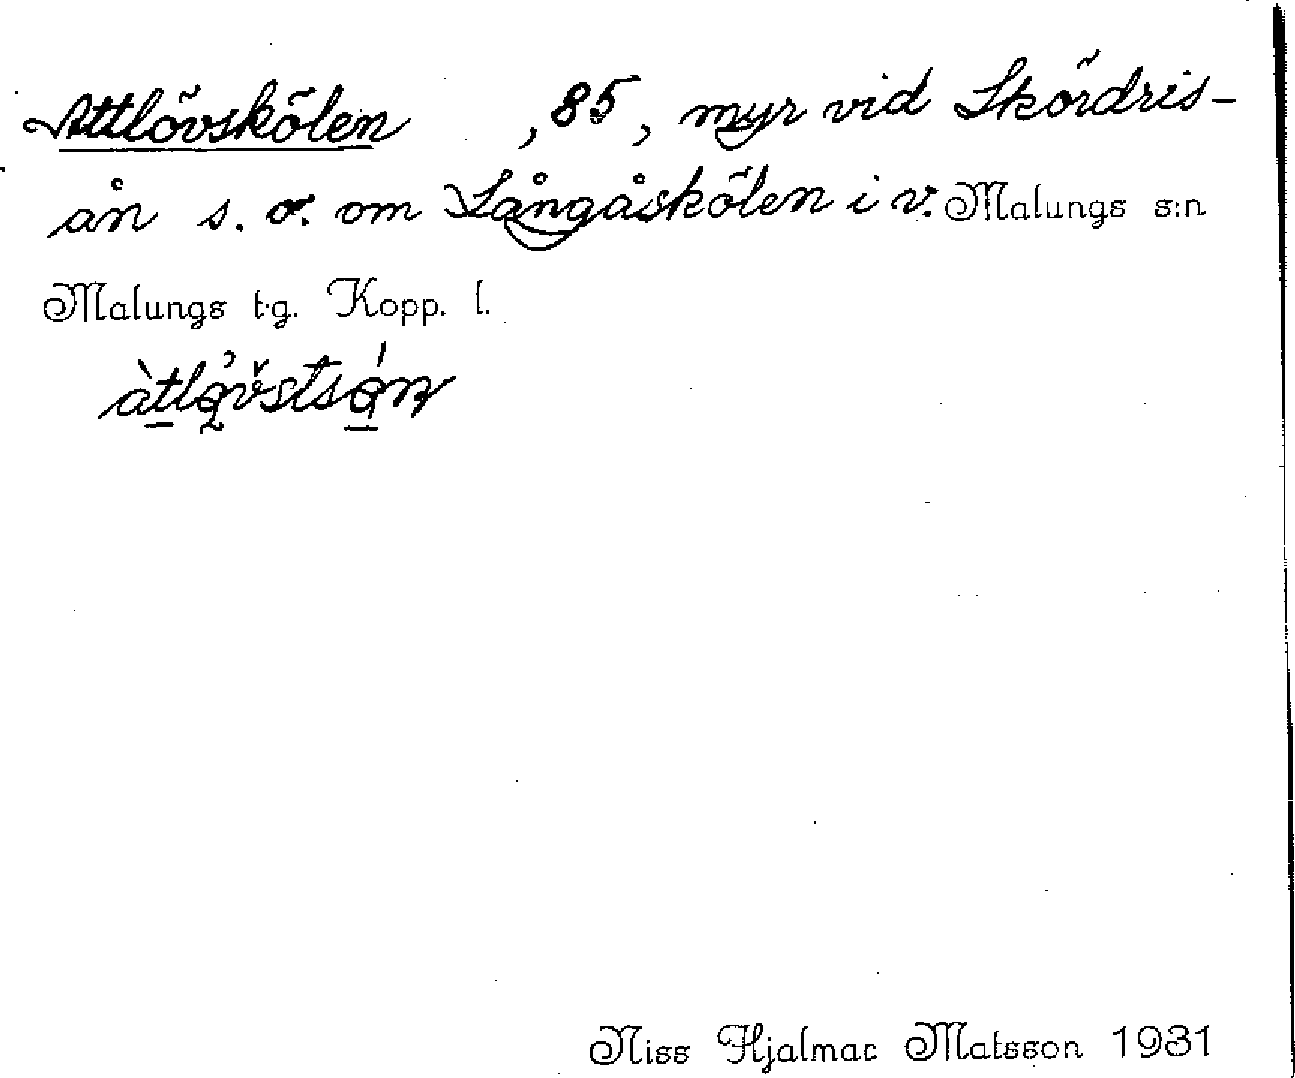 Attlövskölen , 85, myr vid Skördris-
ån s. o. om Långåskölen i v. Malungs s:n
Malungs t.g. Kopp. l.
Niss Hjalmar Matsson 1931